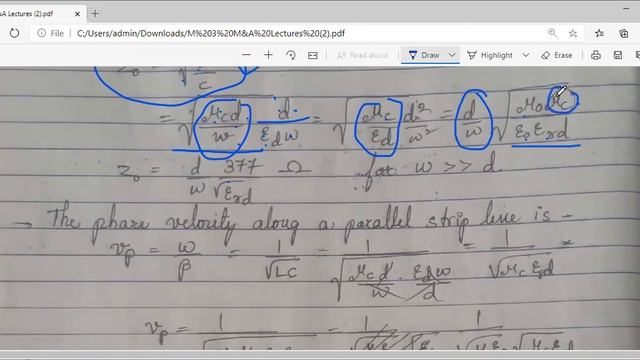 &A Lectures (2).pdf
File C:/Users/admin/Downloads/M%203%20M&A%20Lectures%20(2).pdf
Read aloud Draw Highlight Erase
Z₀ = √ L / C
= √ μcd / w · d / εdw = √ μc / εd · d² / w² = d / w √ μ₀μc / ε₀ εrd
Z₀ = d / w 377 / √εrd Ω for w >> d.
→ The phase velocity along a parallel strip line is -
vp = ω / β = 1 / √LC = 1 / √ μcd / w · εdw / d = 1 / √μc εd =
vp = 1 = 1 = 1